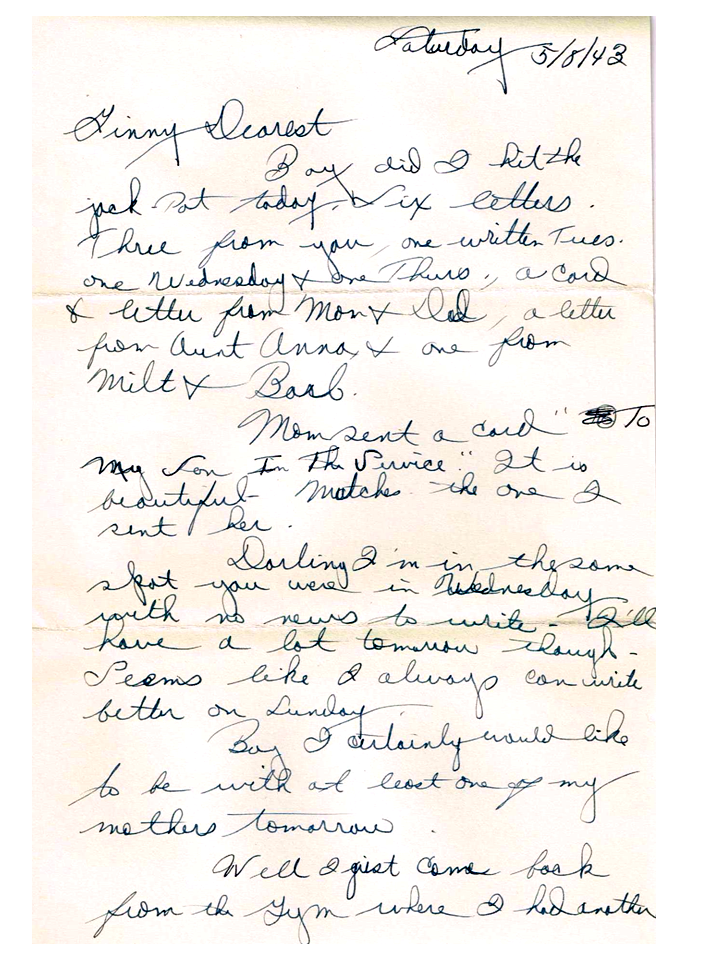 Saturday 5/8/43
Ginny Dearest
Boy did I hit the
jack pot today. Six letters.
Three from you, one written Tues.
one Wednesday & one Thurs., a card
& letter from Mom & Dad, a letter
from Aunt Anna, & one from
Milt & Barb.
Mom sent a card " To
my Son In The Service." It is
beautiful - Matches the one I
sent her.
Darling I'm in the same
spot you were in Wednesday
with no news to write - I'll
have a lot tomorrow though -
Seems like I always can write
better on Sunday.
Boy I certainly would like
to be with at least one of my
mothers tomorrow.
Well I just came back
from the Gym where I had another